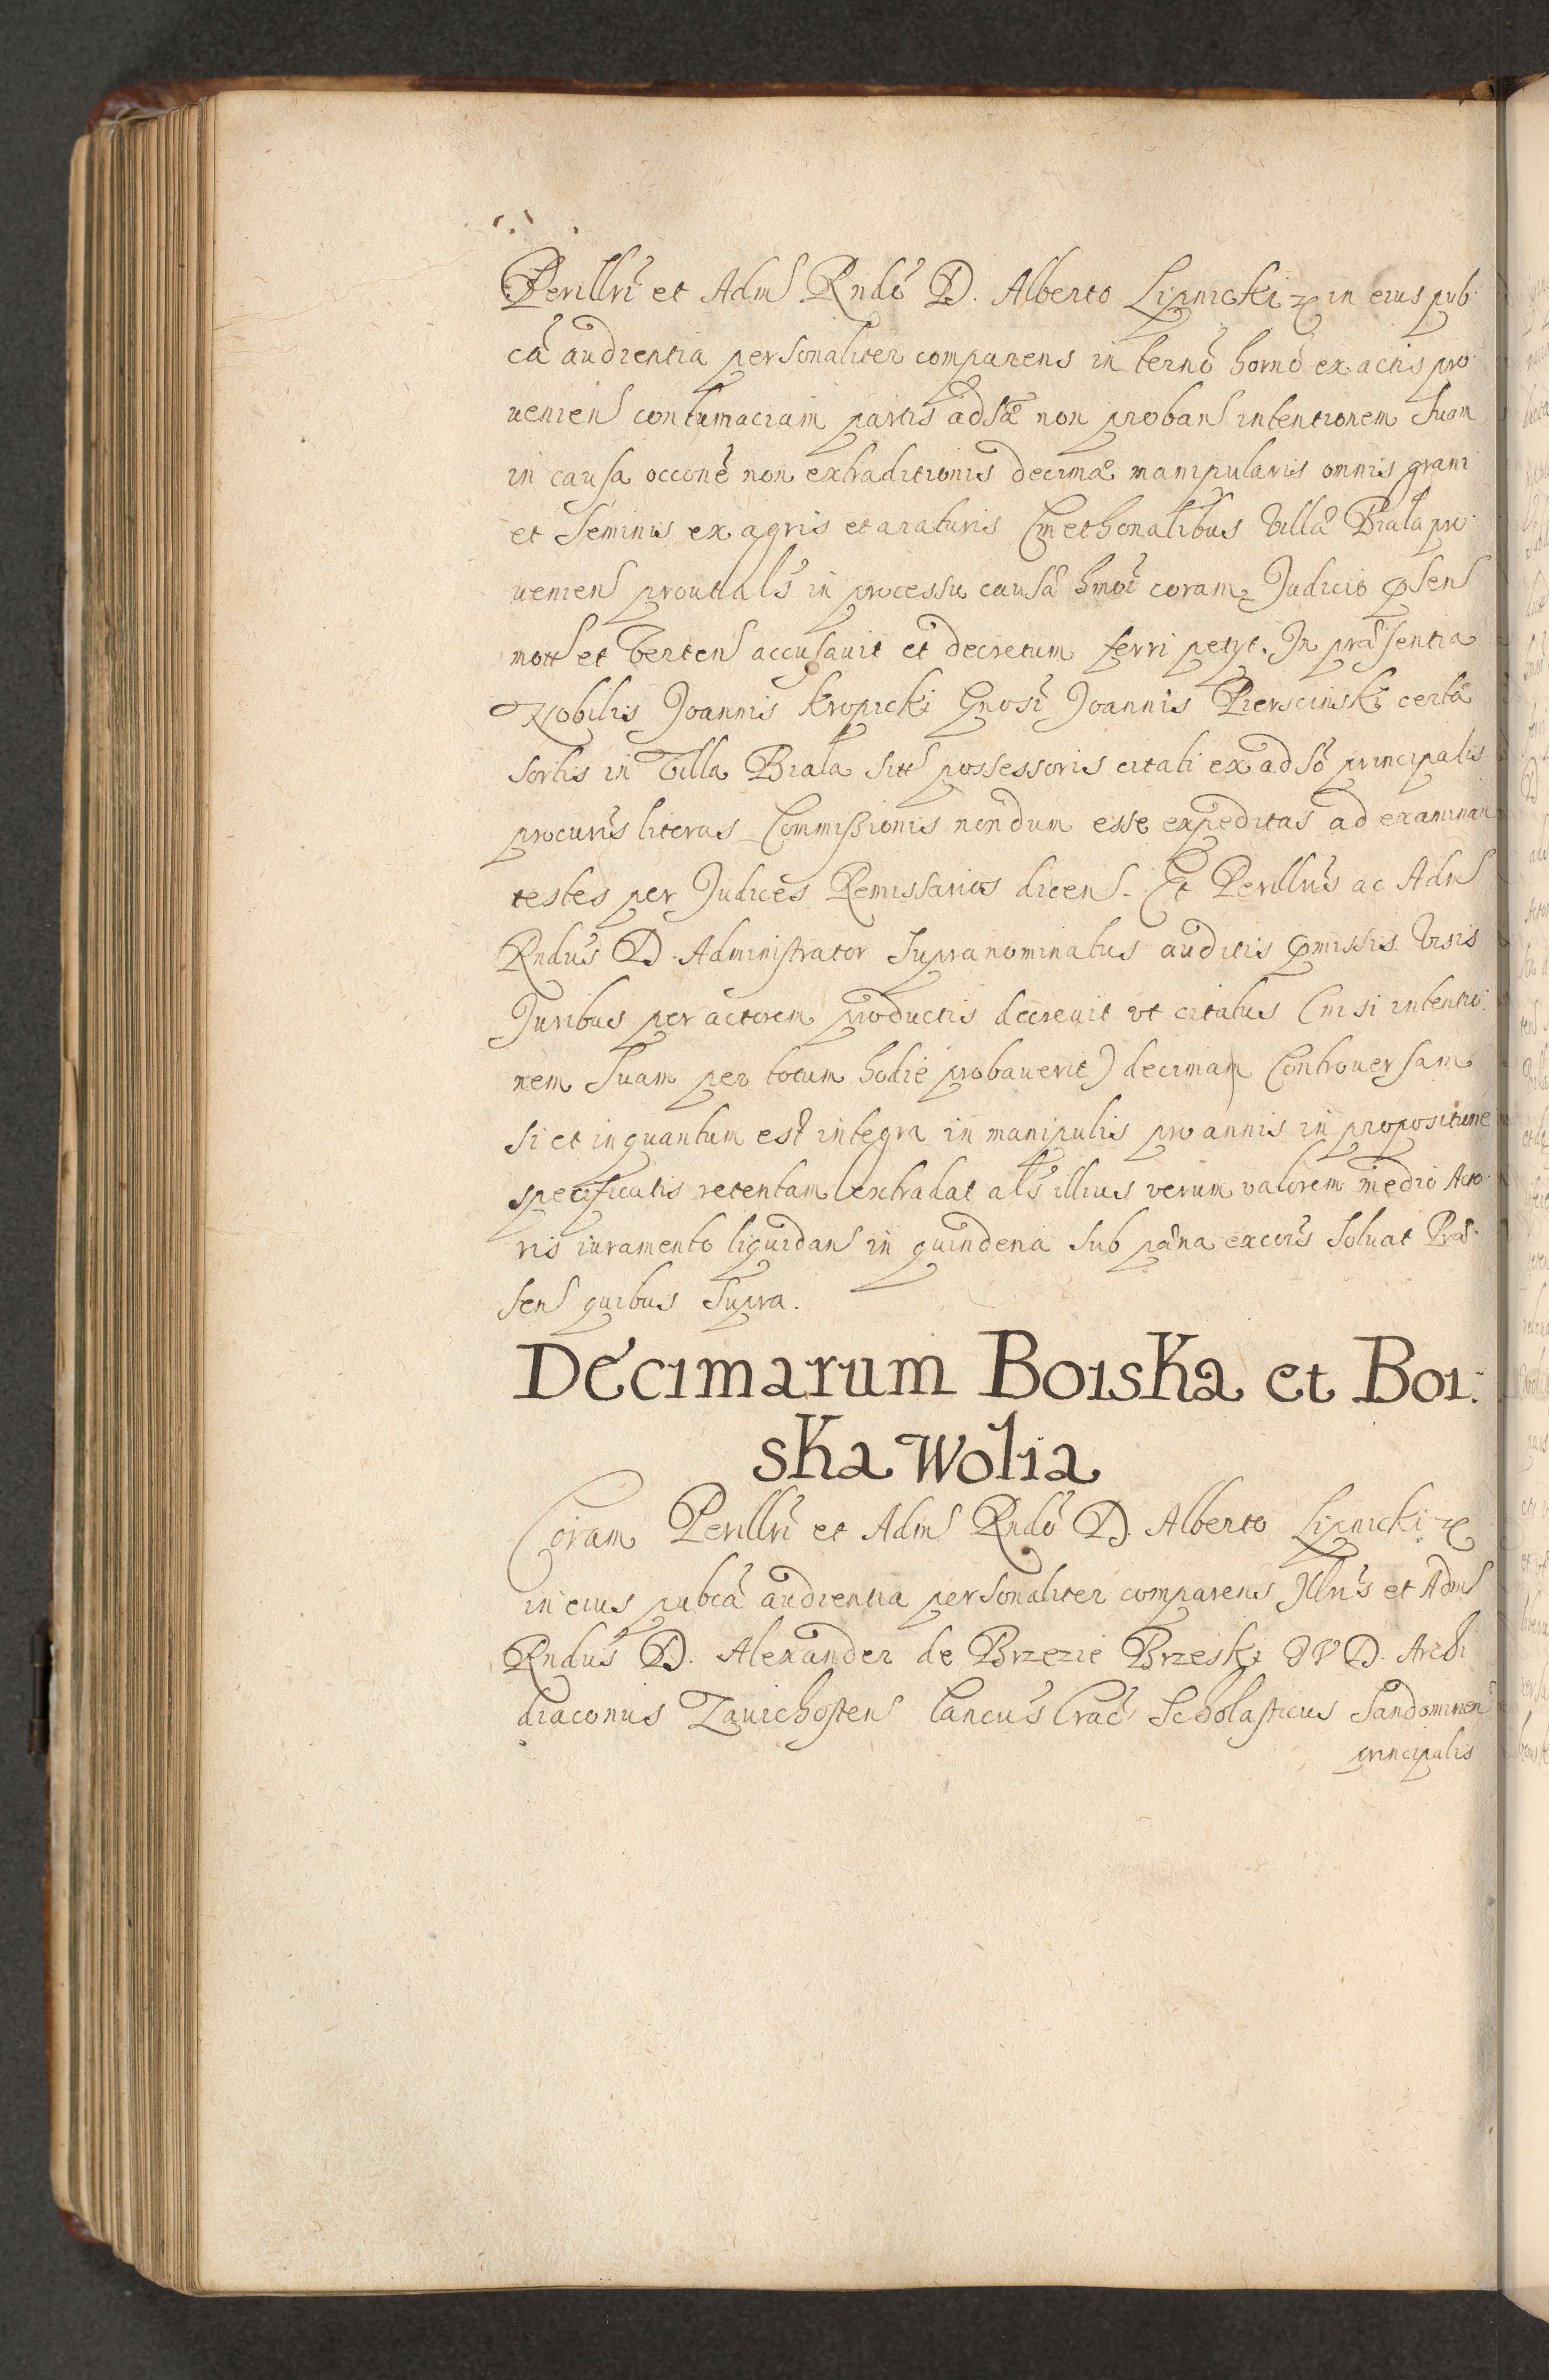 Perillri et Adm Rndo D. Alberto Lipnicki etc in eius pub-
ca audientia personaliter comparens in termo horno ex actis pro-
veniens contumaciam partis adsae non probans intentionem suam
in causa occone non extraditionis decimae manipularis omnis grani
et seminis ex agris et araturis Cmethonalibus Villae Biala pro-
veniens prout als in processu causae hmoi coram Judicio psens
mott et verten accusavit et decretum ferri petyt. In praesentia
Nobilis Joannis Kropicki Gnosi Joannis Pierscinski certae
sortis in Villa Biala sitt possessoris citati ex adso principalis
procuris literas Commissionis nondum esse expeditas ad examinan
testes per Judices Remissarios dicens. Et Perillris ac Adm
Rndus D. Administrator supranominatus auditis pmissis visis
Juribus per actorem productis decrevit ut citatus (nisi intentio-
nem suam per totum hodie probaverit) decimam Controversam
si et inquantum est integra in manipulis pro annis in propositione
specificatis retentam extradat als illius verum valorem medio Acto-
ris iuramento liquidans in quindena sub paena excois solvat Prae-
sen quibus supra.
Decimarum Boiska et Boi-
ska Wolia
Coram Perillri et Adm Rndo D. Alberto Lipnicki etc
in eius pubca audientia personaliter comparens Illris et Adm
Rndus D. Alexander de Brzezie Brzeski JVD. Archi
diaconus Zavichosten Cancus Crac Scholasticus Sandomirien
principalis